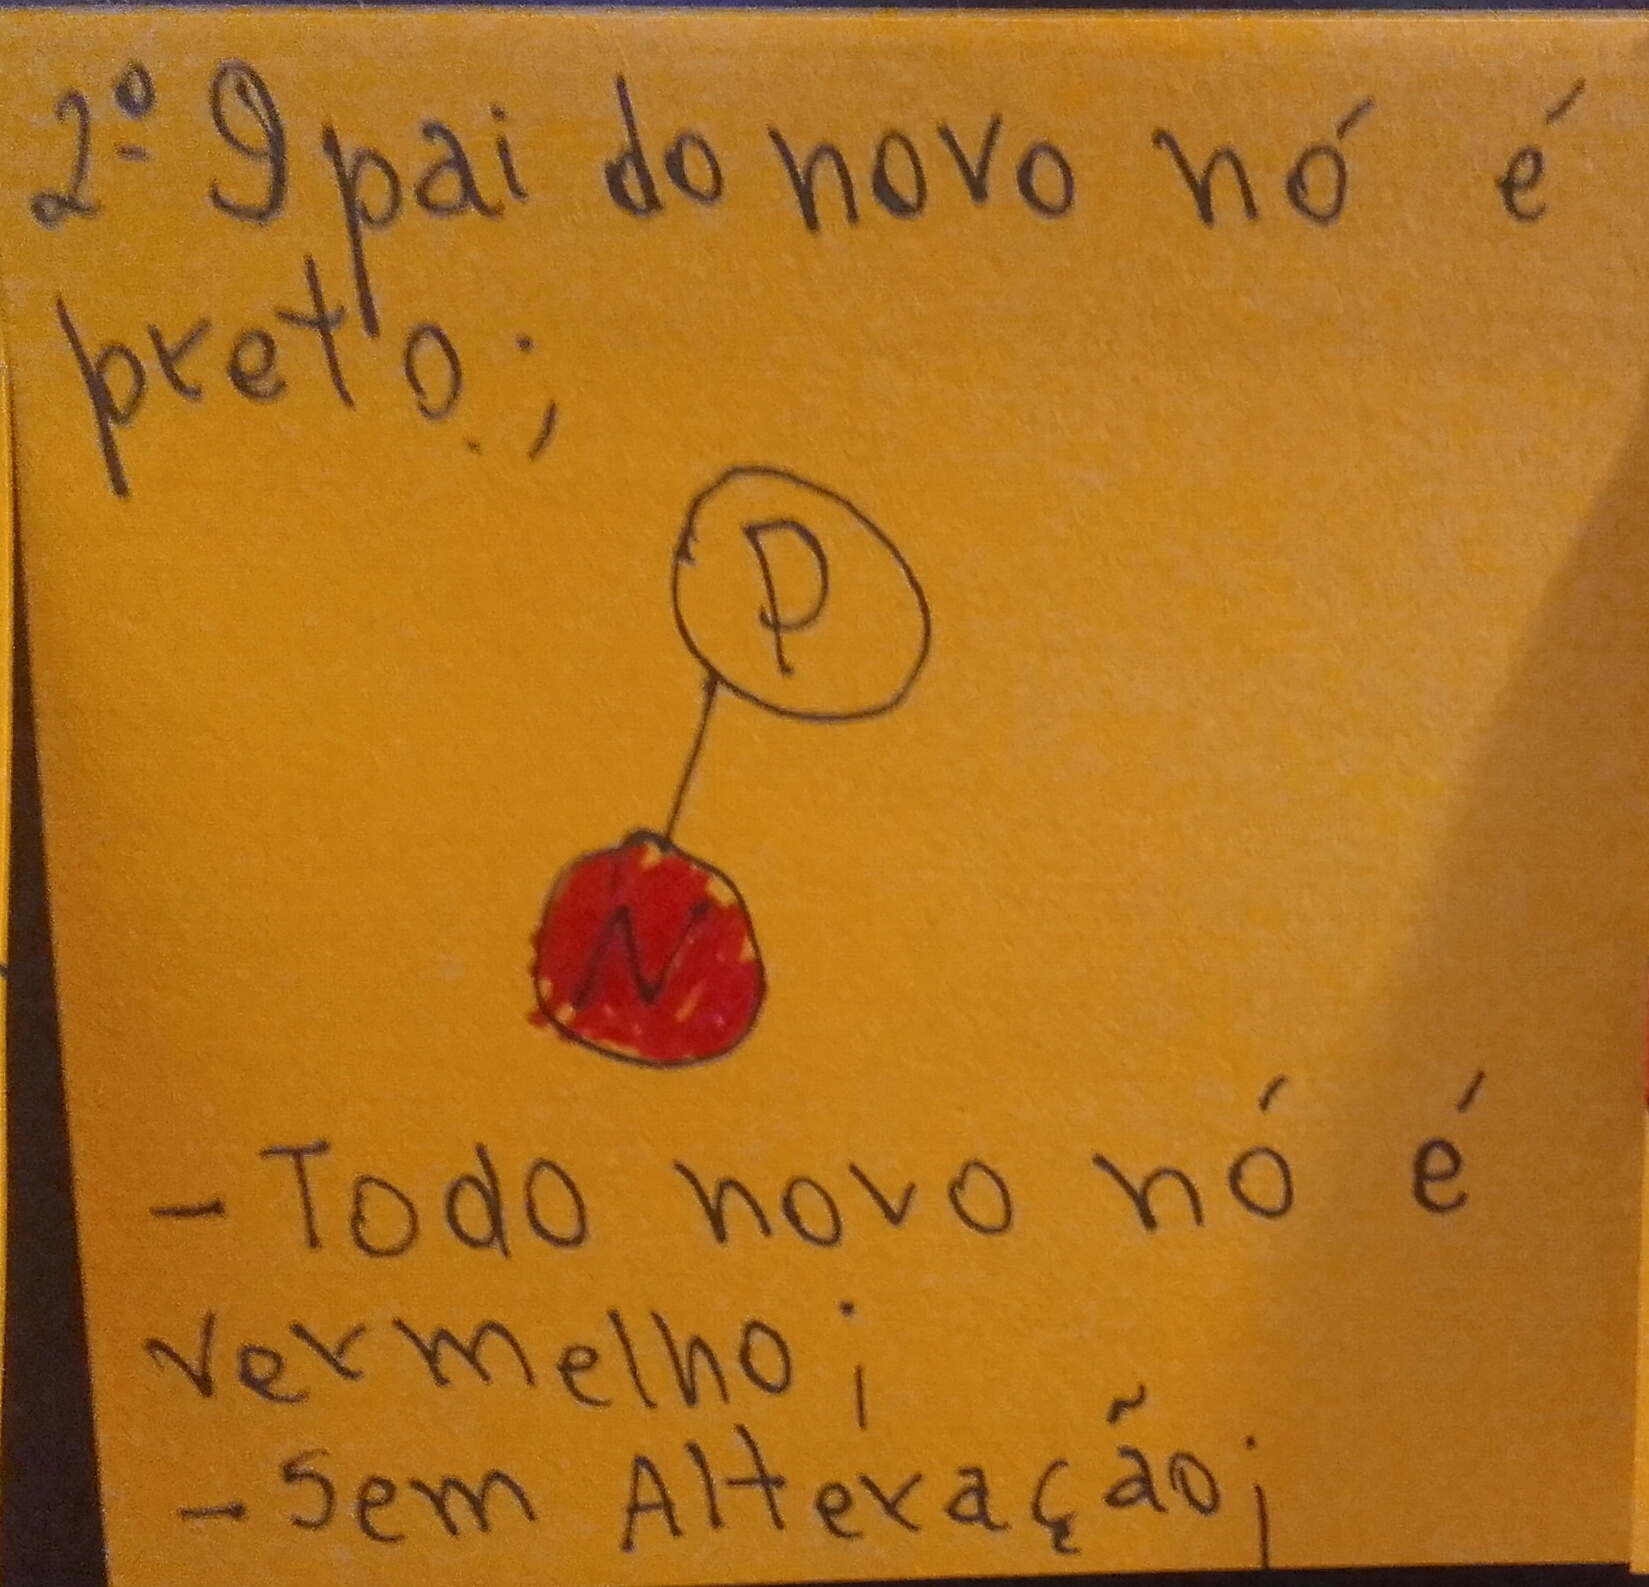 2º O pai do novo nó é
preto;
P
N
- Todo novo nó é
vermelho;
- Sem Alteração;